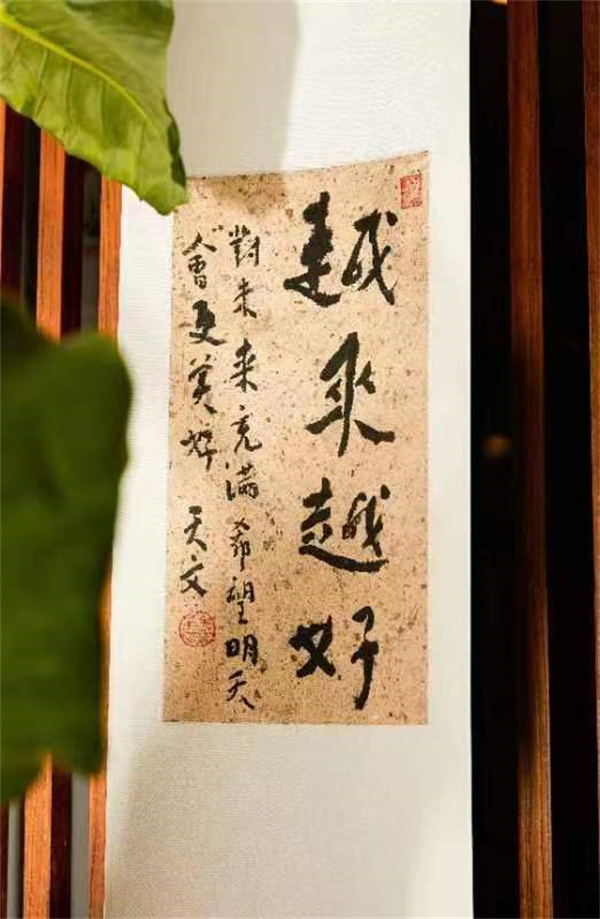 越来越好
對未来充满希望明天
會更美好
天文